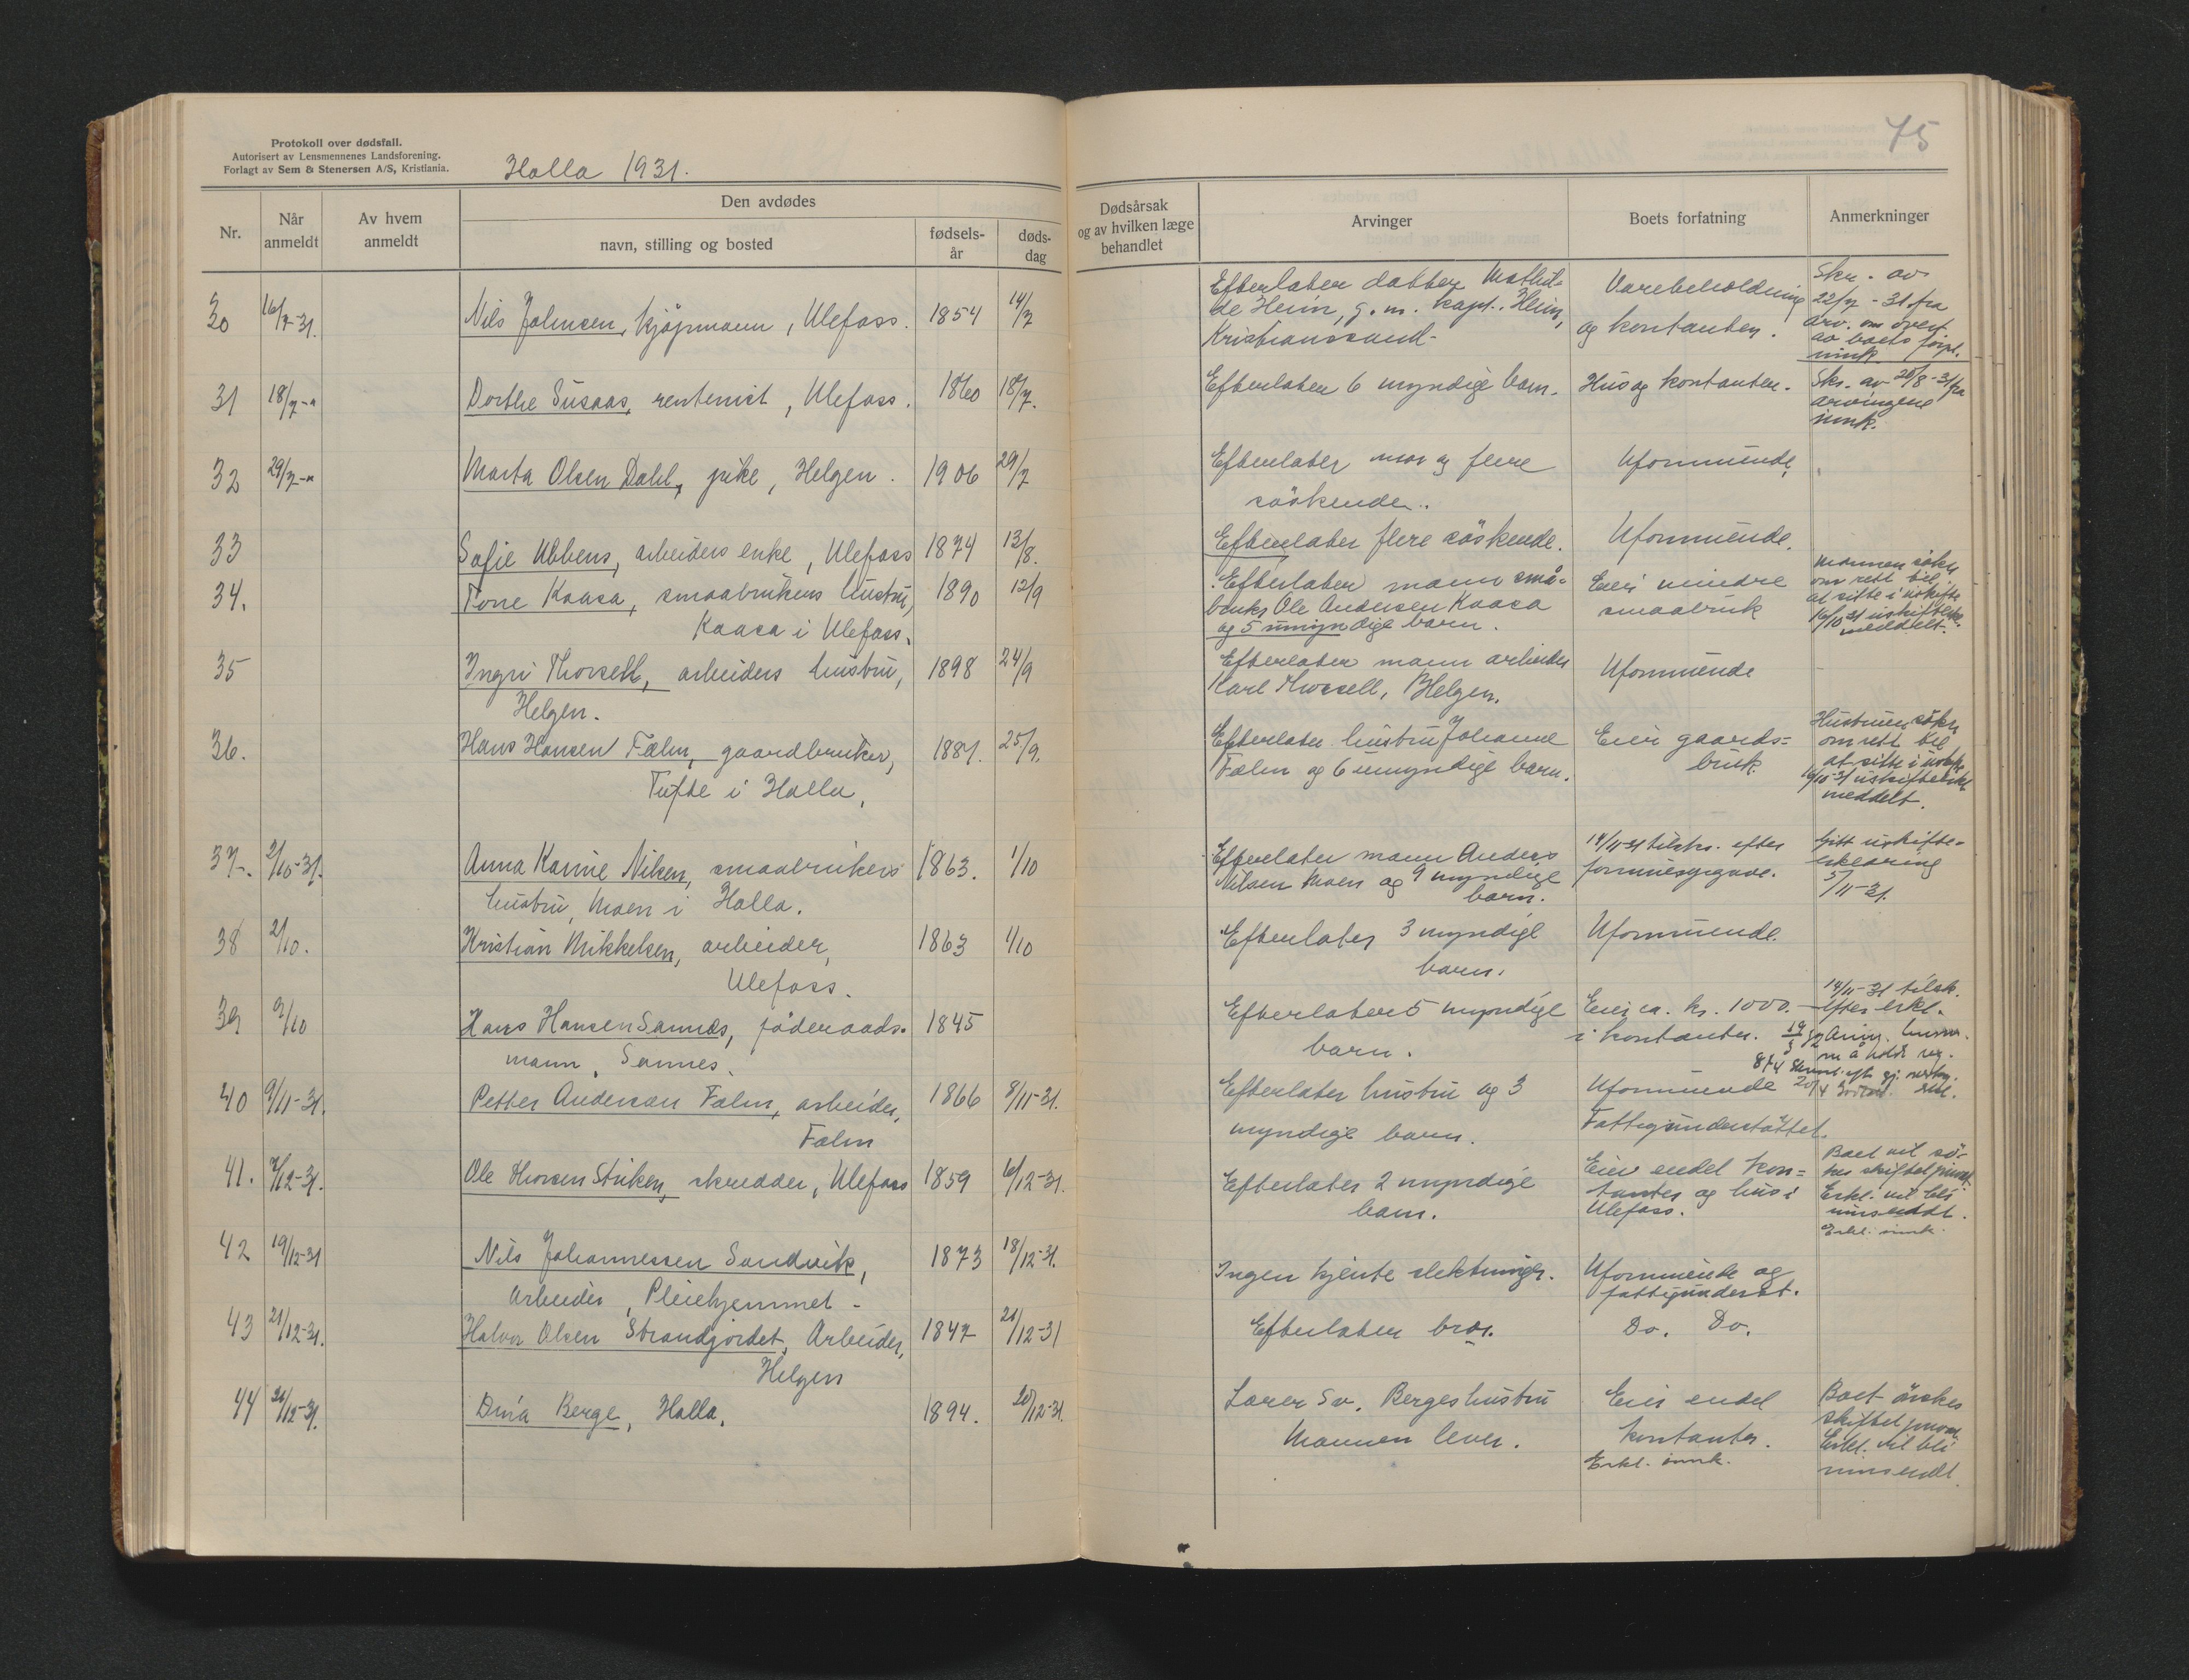 Protokoll over dødsfall.
Autorisert av Lensmennenes Landsforening.
Forlagt av Sem & Stenersen A/S, Kristiania.
Holla 1931.
75
Nr.
Når anmeldt
Av hvem anmeldt
Den avdødes
navn, stilling og bosted
fødsels-år
døds-dag
Dødsårsak og av hvilken læge behandlet
Arvinger
Boets forfatning
Anmerkninger
30 16/7-31. Nils Johnsen, kjøpmann, Ulefoss. 1854 14/7
Efterlater datter Mathil-
de Heim, g.m. kapt. Heim,
Kristianssand.
Varebeholdning
og kontanter.
Skr. av
22/7-31 fra
arv. om overt.
av boets forpl.
innk.
31 18/7-" Dorthe Susaas, rentenist, Ulefoss. 1860 18/7.
Efterlater 6 myndige barn.
Hus og kontanter.
Skr. av 20/8-31 fra
arvingene
innk.
32 29/7-" Marta Olsen Dahl, pike, Helgen. 1906 29/7
Efterlater mor og flere
søskende.
Uformuende.
33 Sofie Ubbens, arbeiders enke, Ulefoss 1874 13/8.
Efterlater flere søskende.
Uformuende.
34. Tone Kaasa, smaabrukers hustru,
Kaasa i Ulefoss. 1890 12/9
Efterlater mann små-
bruker Ole Andersen Kaasa
og 5 umyndige barn.
Eier mindre
smaabruk
Mannen søker
om rett til
at sitte i uskifte
16/10 31 uskifteerkl.
meddelt.
35 Ingri Thorsell, arbeiders hustru,
Helgen. 1898 24/9
Efterlater mann arbeider
Karl Thorsell, Helgen.
Uformuende
36. Hans Hansen Fælm, gaardbruker,
Tufte i Holla, 1887. 25/9.
Efterlater hustru Johanne
Fælm og 6 umyndige barn.
Eier gaards-
bruk.
Hustruen søker
om rett til
at sitte i uskifte
16/10-31 uskifteerkl.
meddelt.
37. 2/10-31. Anna Karine Nilsen, smaabrukers
hustru, Moen i Holla. 1863. 1/10
Efterlater mann Anders
Nilsen Moen og 9 myndige
barn.
14/11-31 tilskr. efter
formuesopgave.
Gitt uskifte-
erklæring
5/11-31.
38 2/10. Kristian Mikkelsen, arbeider,
Ulefoss. 1863 1/10
Efterlater 3 myndige
barn.
Uformuende.
39 9/10 Hans Hansen Sannes, føderaads-
mann, Sannes. 1845
Efterlater 5 myndige
barn.
Eier ca. kr. 1000.
i kontanter.
14/11-31 tilsk.
efter erkl.
40 9/11-31. Petter Andersen Fælm, arbeider,
Fælm 1866 8/11-31.
Efterlater hustru og 3
myndige barn.
Uformuende
Fattigunderstøttet.
41. 7/12-31. Ole Thorsen Striken, skredder, Ulefoss 1859 6/12-31.
Efterlater 2 myndige
barn.
Eier endel kon-
tanter og hus i
Ulefoss.
Boet vil sø-
kes skiftet privat
Erkl. vil bli
innsendt.
Erkl. innk.
42 19/12-31 Nils Johannessen Sandvik,
Arbeider, Pleiehjemmet. 1873 18/12-31.
Ingen kjente slektninger.
Uformuende og
fattigunderst.
43 21/12-31. Halvor Olsen Strandjordet, Arbeider,
Helgen 1847 21/12-31
Efterlater bror.
Do. Do.
44 21/12-31. Dina Berge, Holla. 1894. 20/12-31.
Lærer Sv. Berges hustru
Mannen lever.
Eier endel
kontanter.
Erkl. innk.
Boet ønskes
skiftet privat
Erkl. vil bli
innsendt